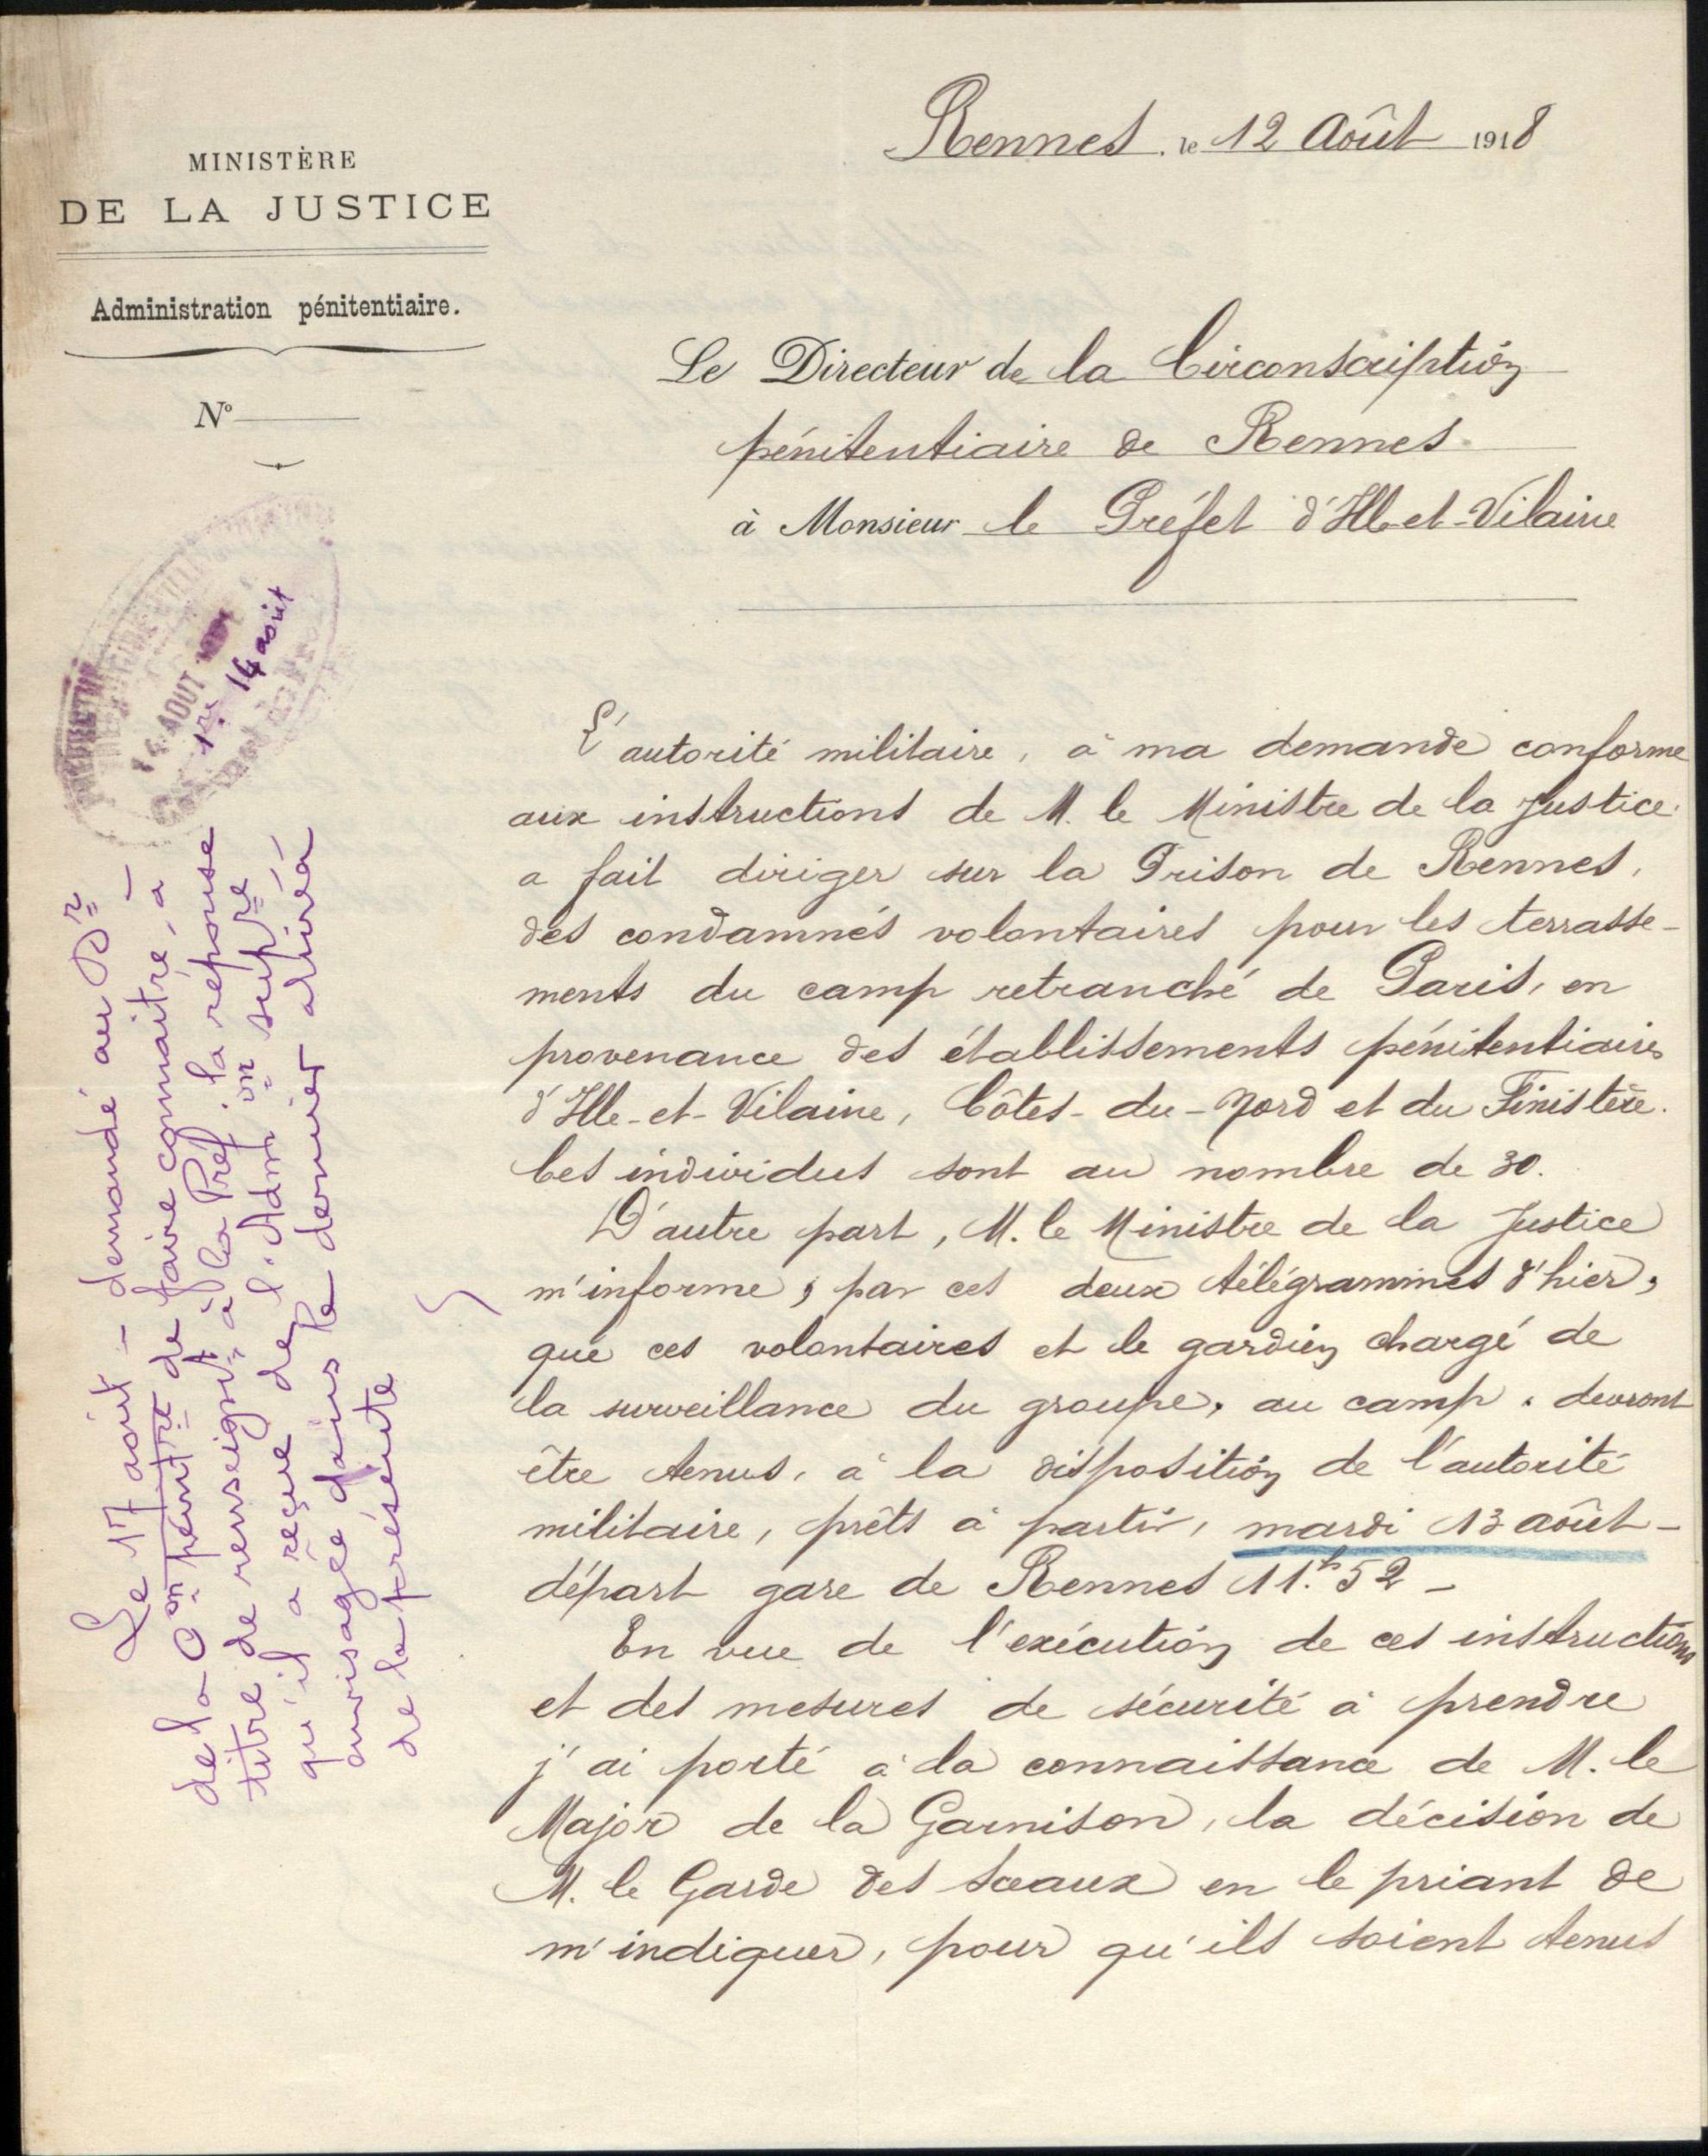 MINISTÈRE
DE LA JUSTICE
Administration pénitentiaire.
N°
Rennes, le 12 Août 1918
Le Directeur de la Circonscription
pénitentiaire de Rennes
à Monsieur le Préfet d'Ille-et-Vilaine
14 AOUT
14 août
L'autorité militaire, à ma demande conforme
aux instructions de M. le Ministre de la Justice
a fait diriger sur la Prison de Rennes,
des condamnés volontaires pour les terrasse-
ments du camp retranché de Paris, en
provenance des établissements pénitentiaires
d'Ille-et-Vilaine, Côtes-du-Nord et du Finistère.
Ces individus sont au nombre de 30.
D'autre part, M. le Ministre de la Justice
m'informe, par ces deux télégrammes d'hier,
que ces volontaires et le gardien chargé de
la surveillance du groupe, au camp, devront
être tenus, à la disposition de l'autorité
militaire, prêts à partir, mardi 13 août -
départ gare de Rennes 11.h 52 -
En vue de l'exécution de ces instructions
et des mesures de sécurité à prendre
j'ai porté à la connaissance de M. le
Major de la Garnison, la décision de
M. le Garde des Sceaux en le priant de
m'indiquer, pour qu'ils soient tenus
Le 17 août - demandé au Dr -
de la Con pénitre de faire connaître, à
titre de renseignt à la Préf. la réponse
qu'il a reçue de l'Admon supre
envisagée dans le dernier alinéa
de la présente